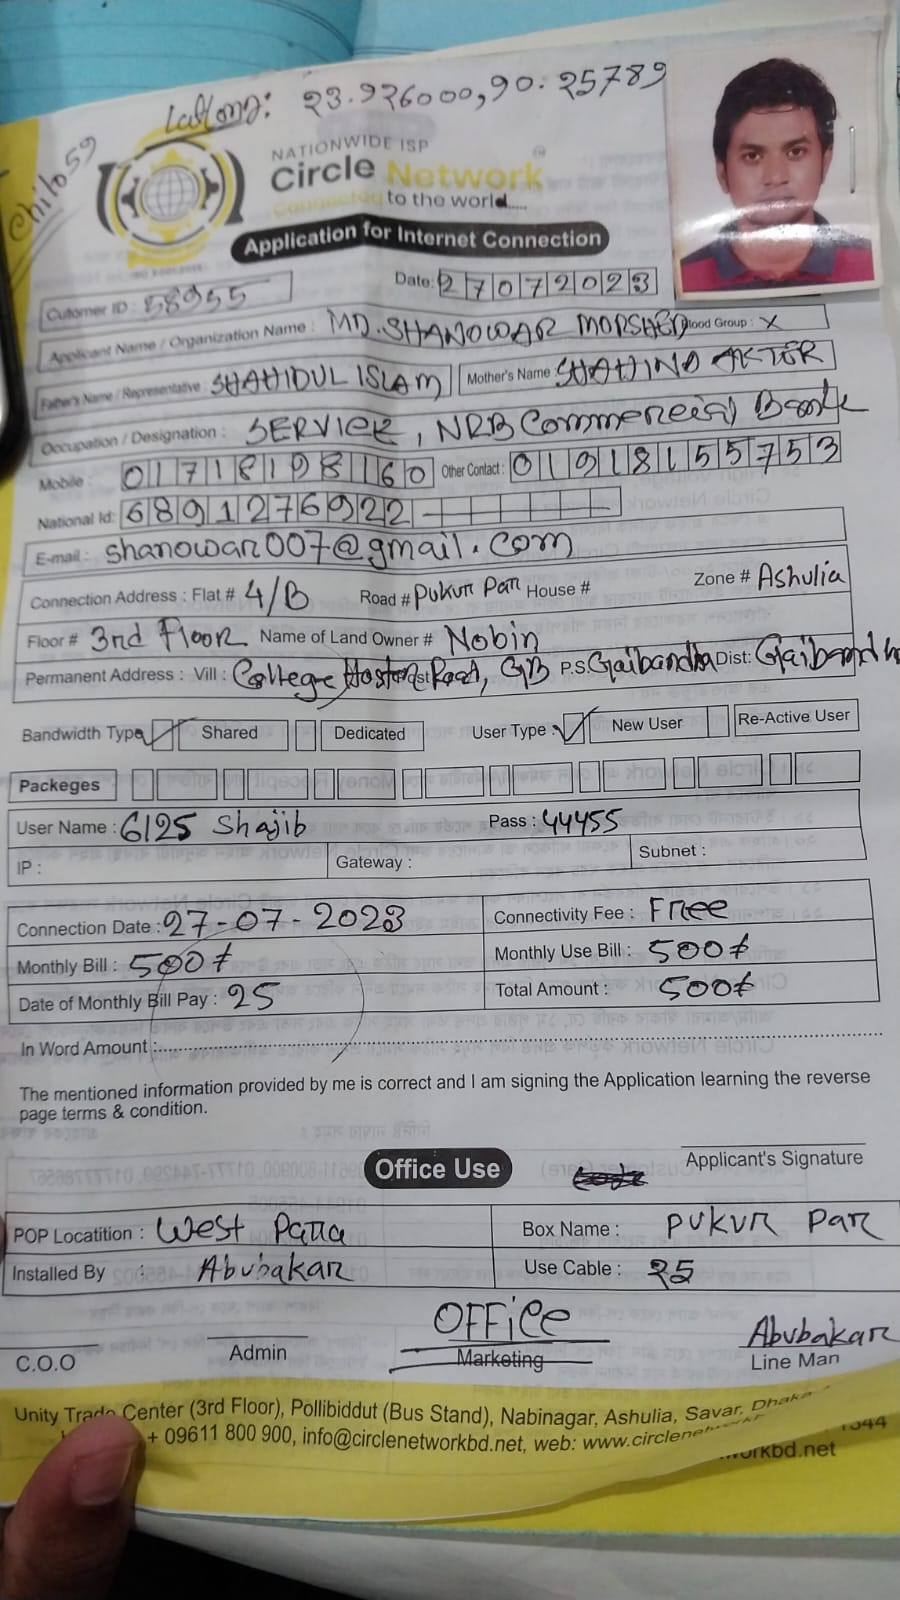 Lat Long: 23.926000, 90.25789
NATIONWIDE ISP
Circle Network
Connected to the world.....
Application for Internet Connection
Date: 27072023
Cutomer ID : 58955
Applicant Name / Organization Name : MD. SHANOWAR MORSHED Blood Group : X
Father's Name / Representative : SHAHIDUL ISLAM Mother's Name : SHAHINO AKTER
Occupation / Designation : SERVICE, NRB Commercial Bank
Mobile : 01718198160 Other Contact : 01918155753
National Id: 6891276922
E-mail : shanowar007@gmail.com
Connection Address : Flat # 4/B Road # Pukur Par House # Zone # Ashulia
Floor # 3rd Floor Name of Land Owner # Nobin
Permanent Address : Vill : College Hostel Road, GB P.S Gaibandha Dist: Gaibandha
Bandwidth Type Shared Dedicated User Type : New User Re-Active User
Packeges
User Name : 6125 Shajib Pass : 44455
IP : Gateway : Subnet :
Connection Date : 27-07-2023 Connectivity Fee : Free
Monthly Bill : 500৳ Monthly Use Bill : 500৳
Date of Monthly Bill Pay : 25 Total Amount : 500৳
In Word Amount :
The mentioned information provided by me is correct and I am signing the Application learning the reverse
page terms & condition.
Applicant's Signature
Office Use
POP Locatition : West Para Box Name : PUKUR PAR
Installed By : Abubakar Use Cable : 25
OFFice Abubakar
C.O.O Admin Marketing Line Man
Unity Trade Center (3rd Floor), Pollibiddut (Bus Stand), Nabinagar, Ashulia, Savar, Dhaka
+ 09611 800 900, info@circlenetworkbd.net, web: www.circlenetwork
workbd.net